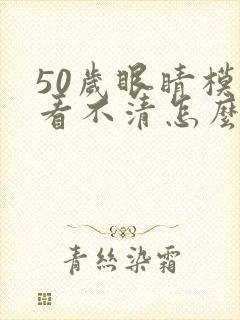 50歲眼睛模
看不清怎麼
青絲染霜